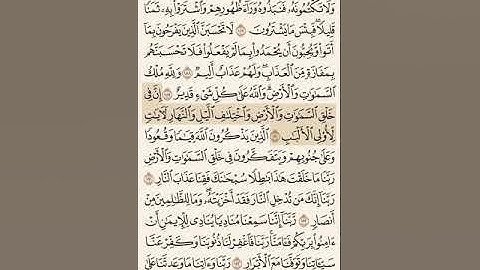 وَلَا تَكْتُمُونَهُۥ فَنَبَذُوهُ وَرَآءَ ظُهُورِهِمْ وَٱشْتَرَوْا۟ بِهِۦ ثَمَنًا
قَلِيلًا ۖ فَبِئْسَ مَا يَشْتَرُونَ ١٨٧ لَا تَحْسَبَنَّ ٱلَّذِينَ يَفْرَحُونَ بِمَآ
أَتَوا۟ وَّيُحِبُّونَ أَن يُحْمَدُوا۟ بِمَا لَمْ يَفْعَلُوا۟ فَلَا تَحْسَبَنَّهُم
بِمَفَازَةٍ مِّنَ ٱلْعَذَابِ ۖ وَلَهُمْ عَذَابٌ أَلِيمٌ ١٨٨ وَلِلَّهِ مُلْكُ
ٱلسَّمَـٰوَٰتِ وَٱلْأَرْضِ ۗ وَٱللَّهُ عَلَىٰ كُلِّ شَىْءٍ قَدِيرٌ ١٨٩ إِنَّ فِى
خَلْقِ ٱلسَّمَـٰوَٰتِ وَٱلْأَرْضِ وَٱخْتِلَـٰفِ ٱلَّيْلِ وَٱلنَّهَارِ لَـَٔايَـٰتٍ
لِّأُو۟لِى ٱلْأَلْبَـٰبِ ١٩٠ ٱلَّذِينَ يَذْكُرُونَ ٱللَّهَ قِيَـٰمًا وَقُعُودًا
وَعَلَىٰ جُنُوبِهِمْ وَيَتَفَكَّرُونَ فِى خَلْقِ ٱلسَّمَـٰوَٰتِ وَٱلْأَرْضِ
رَبَّنَا مَا خَلَقْتَ هَـٰذَا بَـٰطِلًا سُبْحَـٰنَكَ فَقِنَا عَذَابَ ٱلنَّارِ ١٩١
رَبَّنَآ إِنَّكَ مَن تُدْخِلِ ٱلنَّارَ فَقَدْ أَخْزَيْتَهُۥ ۖ وَمَا لِلظَّـٰلِمِينَ مِنْ
أَنصَارٍ ١٩٢ رَّبَّنَآ إِنَّنَا سَمِعْنَا مُنَادِيًا يُنَادِى لِلْإِيمَـٰنِ أَنْ
ءَامِنُوا۟ بِرَبِّكُمْ فَـَٔامَنَّا ۚ رَبَّنَا فَٱغْفِرْ لَنَا ذُنُوبَنَا وَكَفِّرْ عَنَّا
سَيِّـَٔاتِنَا وَتَوَفَّنَا مَعَ ٱلْأَبْرَارِ ١٩٣ رَبَّنَا وَءَاتِنَا مَا وَعَدتَّنَا عَلَىٰ